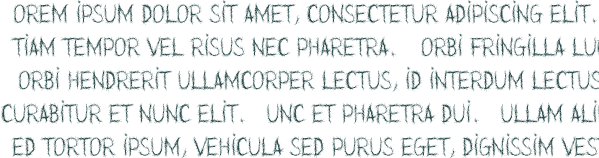 OREM IPSUM DOLOR SIT AMET, CONSECTETUR ADIPISCING ELIT.
TIAM TEMPOR VEL RISUS NEC PHARETRA. ORBI FRINGILLA LU
ORBI HENDRERIT ULLAMCORPER LECTUS, ID INTERDUM LECTUS
CURABITUR ET NUNC ELIT. UNC ET PHARETRA DUI. ULLAM ALI
ED TORTOR IPSUM, VEHICULA SED PURUS EGET, DIGNISSIM VES